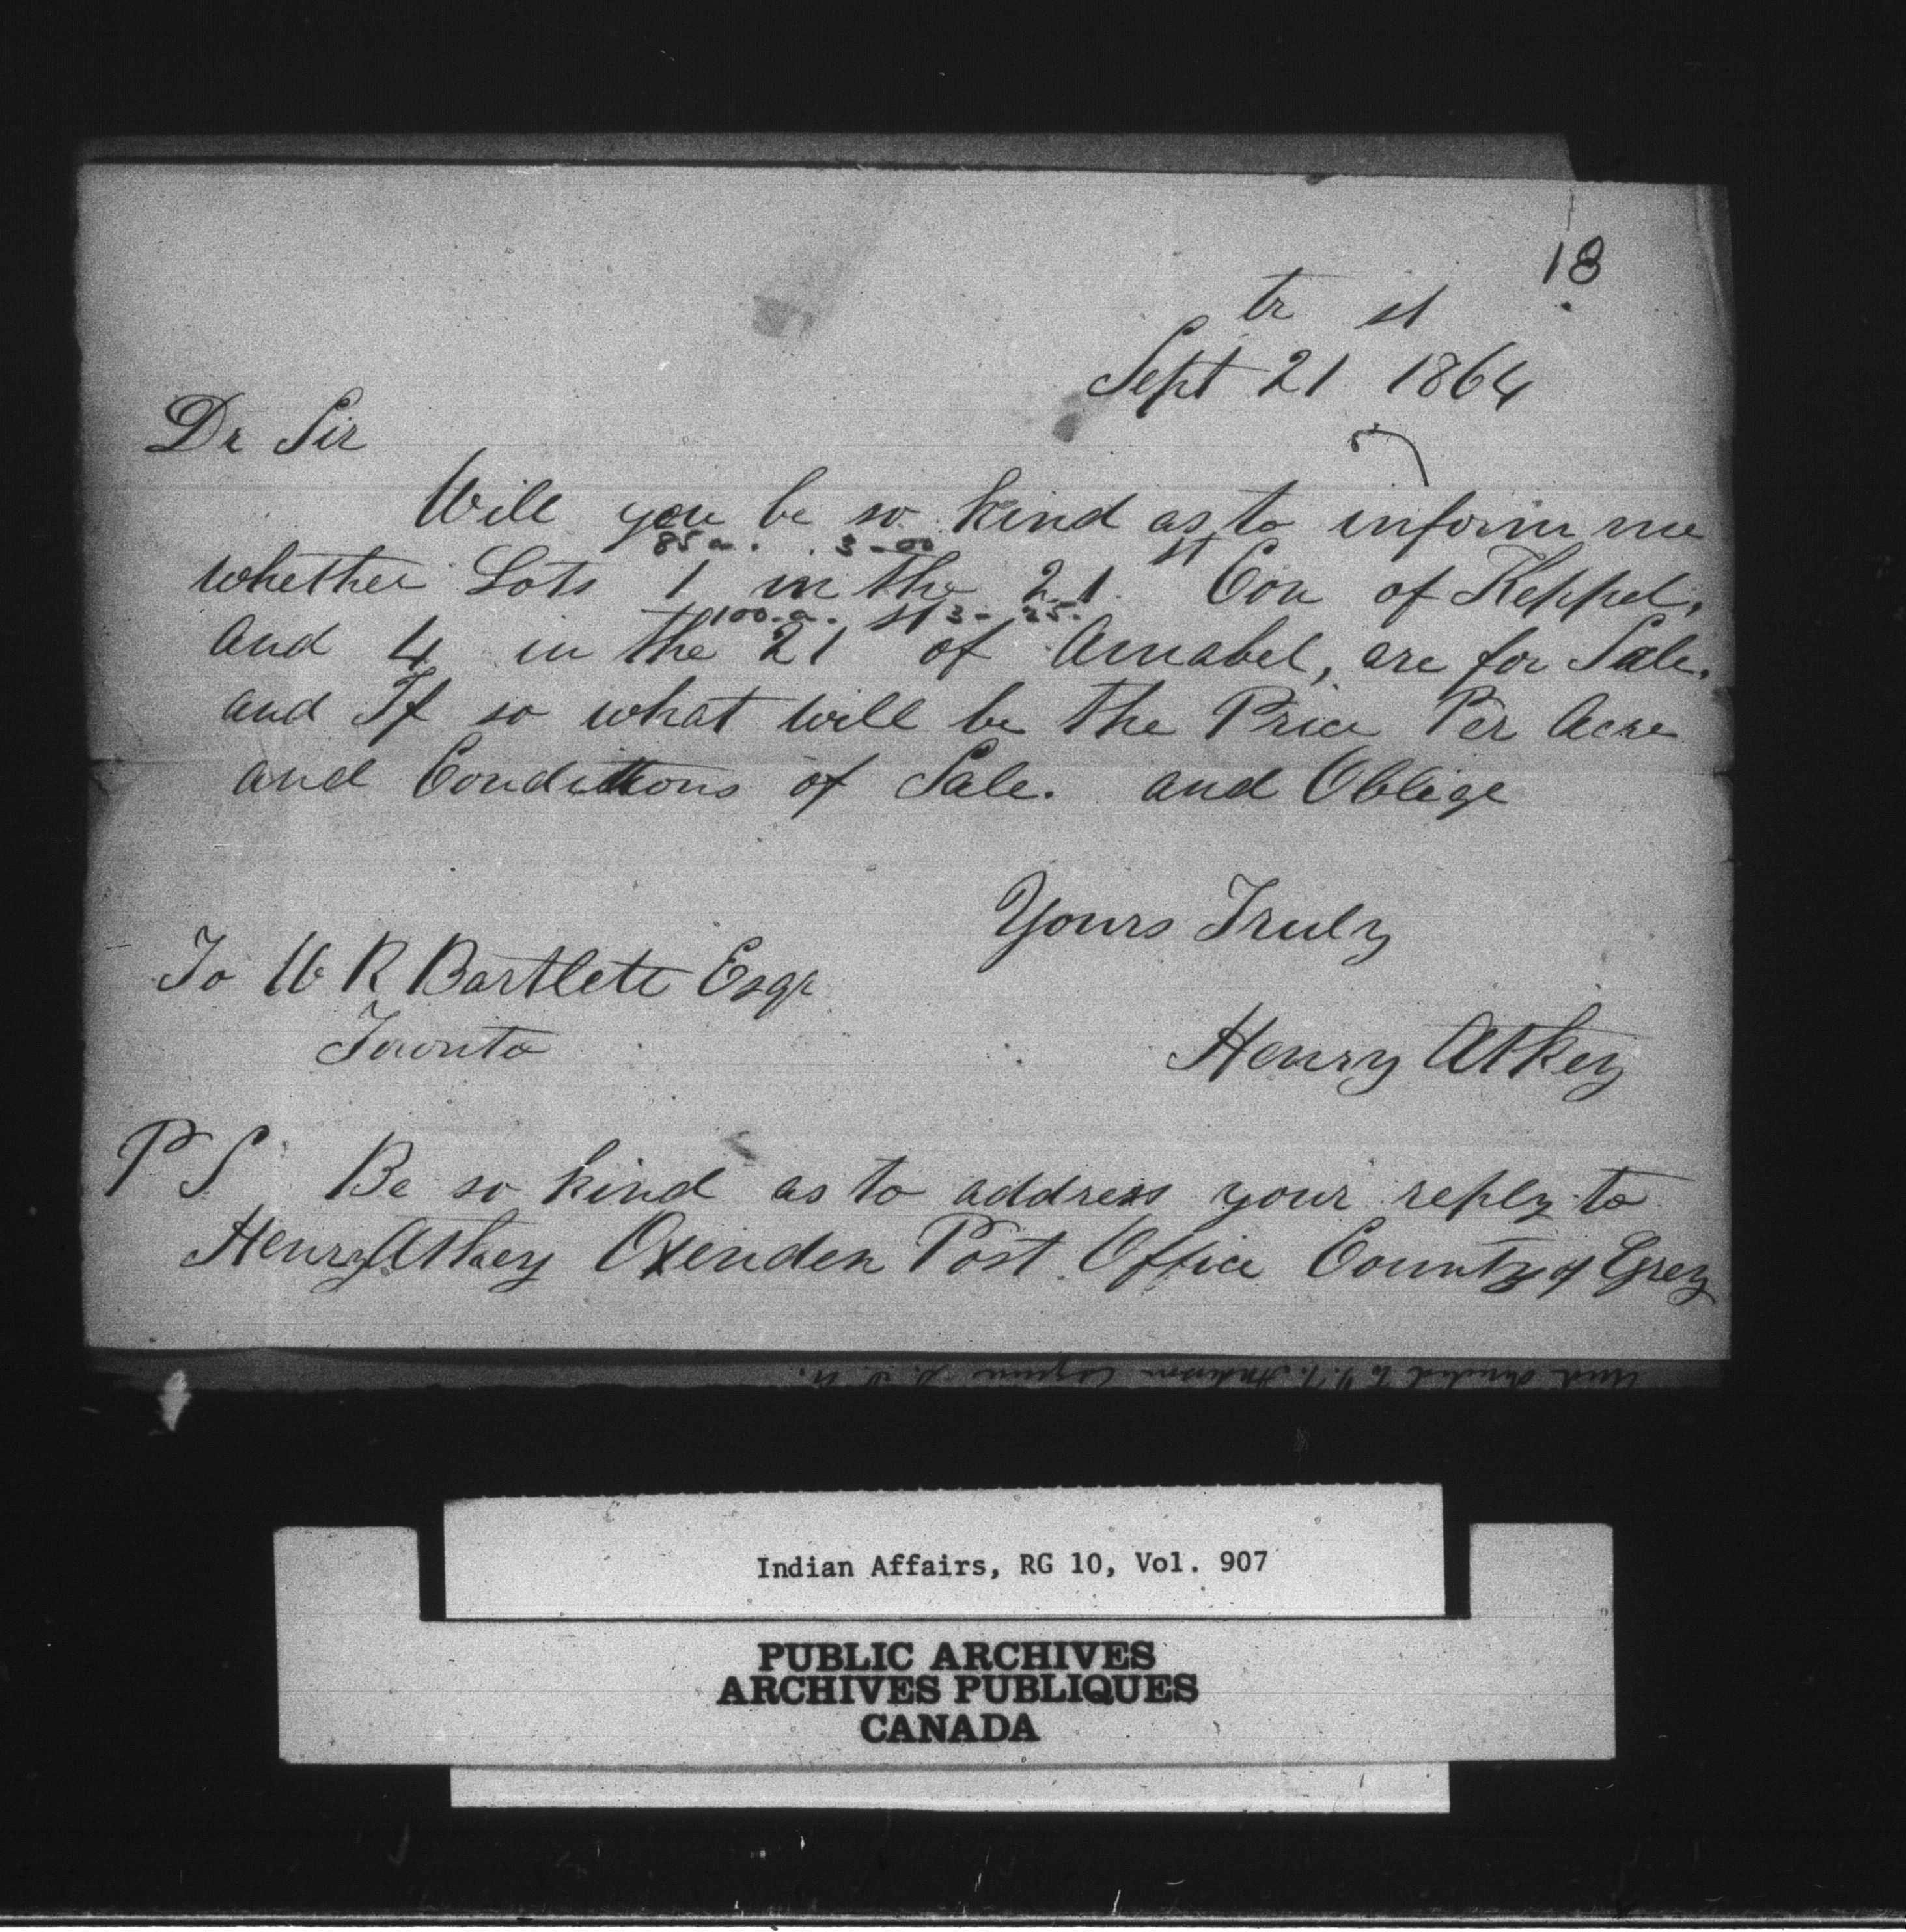 18
Septr 21st 1864
Dr Sir
Will you be so kind as to inform me
85 a. 3-00
whether Lots 1 in the 21st Con of Keppel,
100-a. 3-25.
and 4 in the 21st of Amabel, are for Sale.
and If so what will be the Price Per Acre
and Conditions of Sale. and Oblige
Yours Truly
To W R Bartlett Esqr
Toronto
Henry Atkey
P S Be so kind as to address your reply to
Henry Atkey Oxenden Post Office County of Grey
Indian Affairs, RG 10, Vol. 907
PUBLIC ARCHIVES
ARCHIVES PUBLIQUES
CANADA